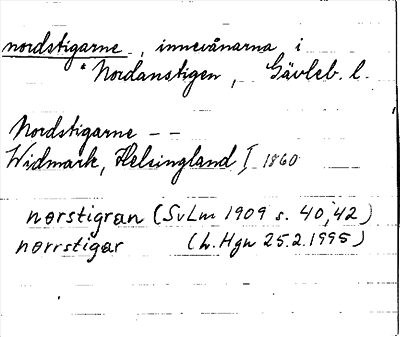 nordstigarne, innevånarna i
Nordanstigen, Gävleb. l.
Nordstigarne - -
Widmark, Helsingland I 1860
nørstigran (SvLm 1909 s. 40, 42)
nørrstigar (L. Hgn 25.2.1995)